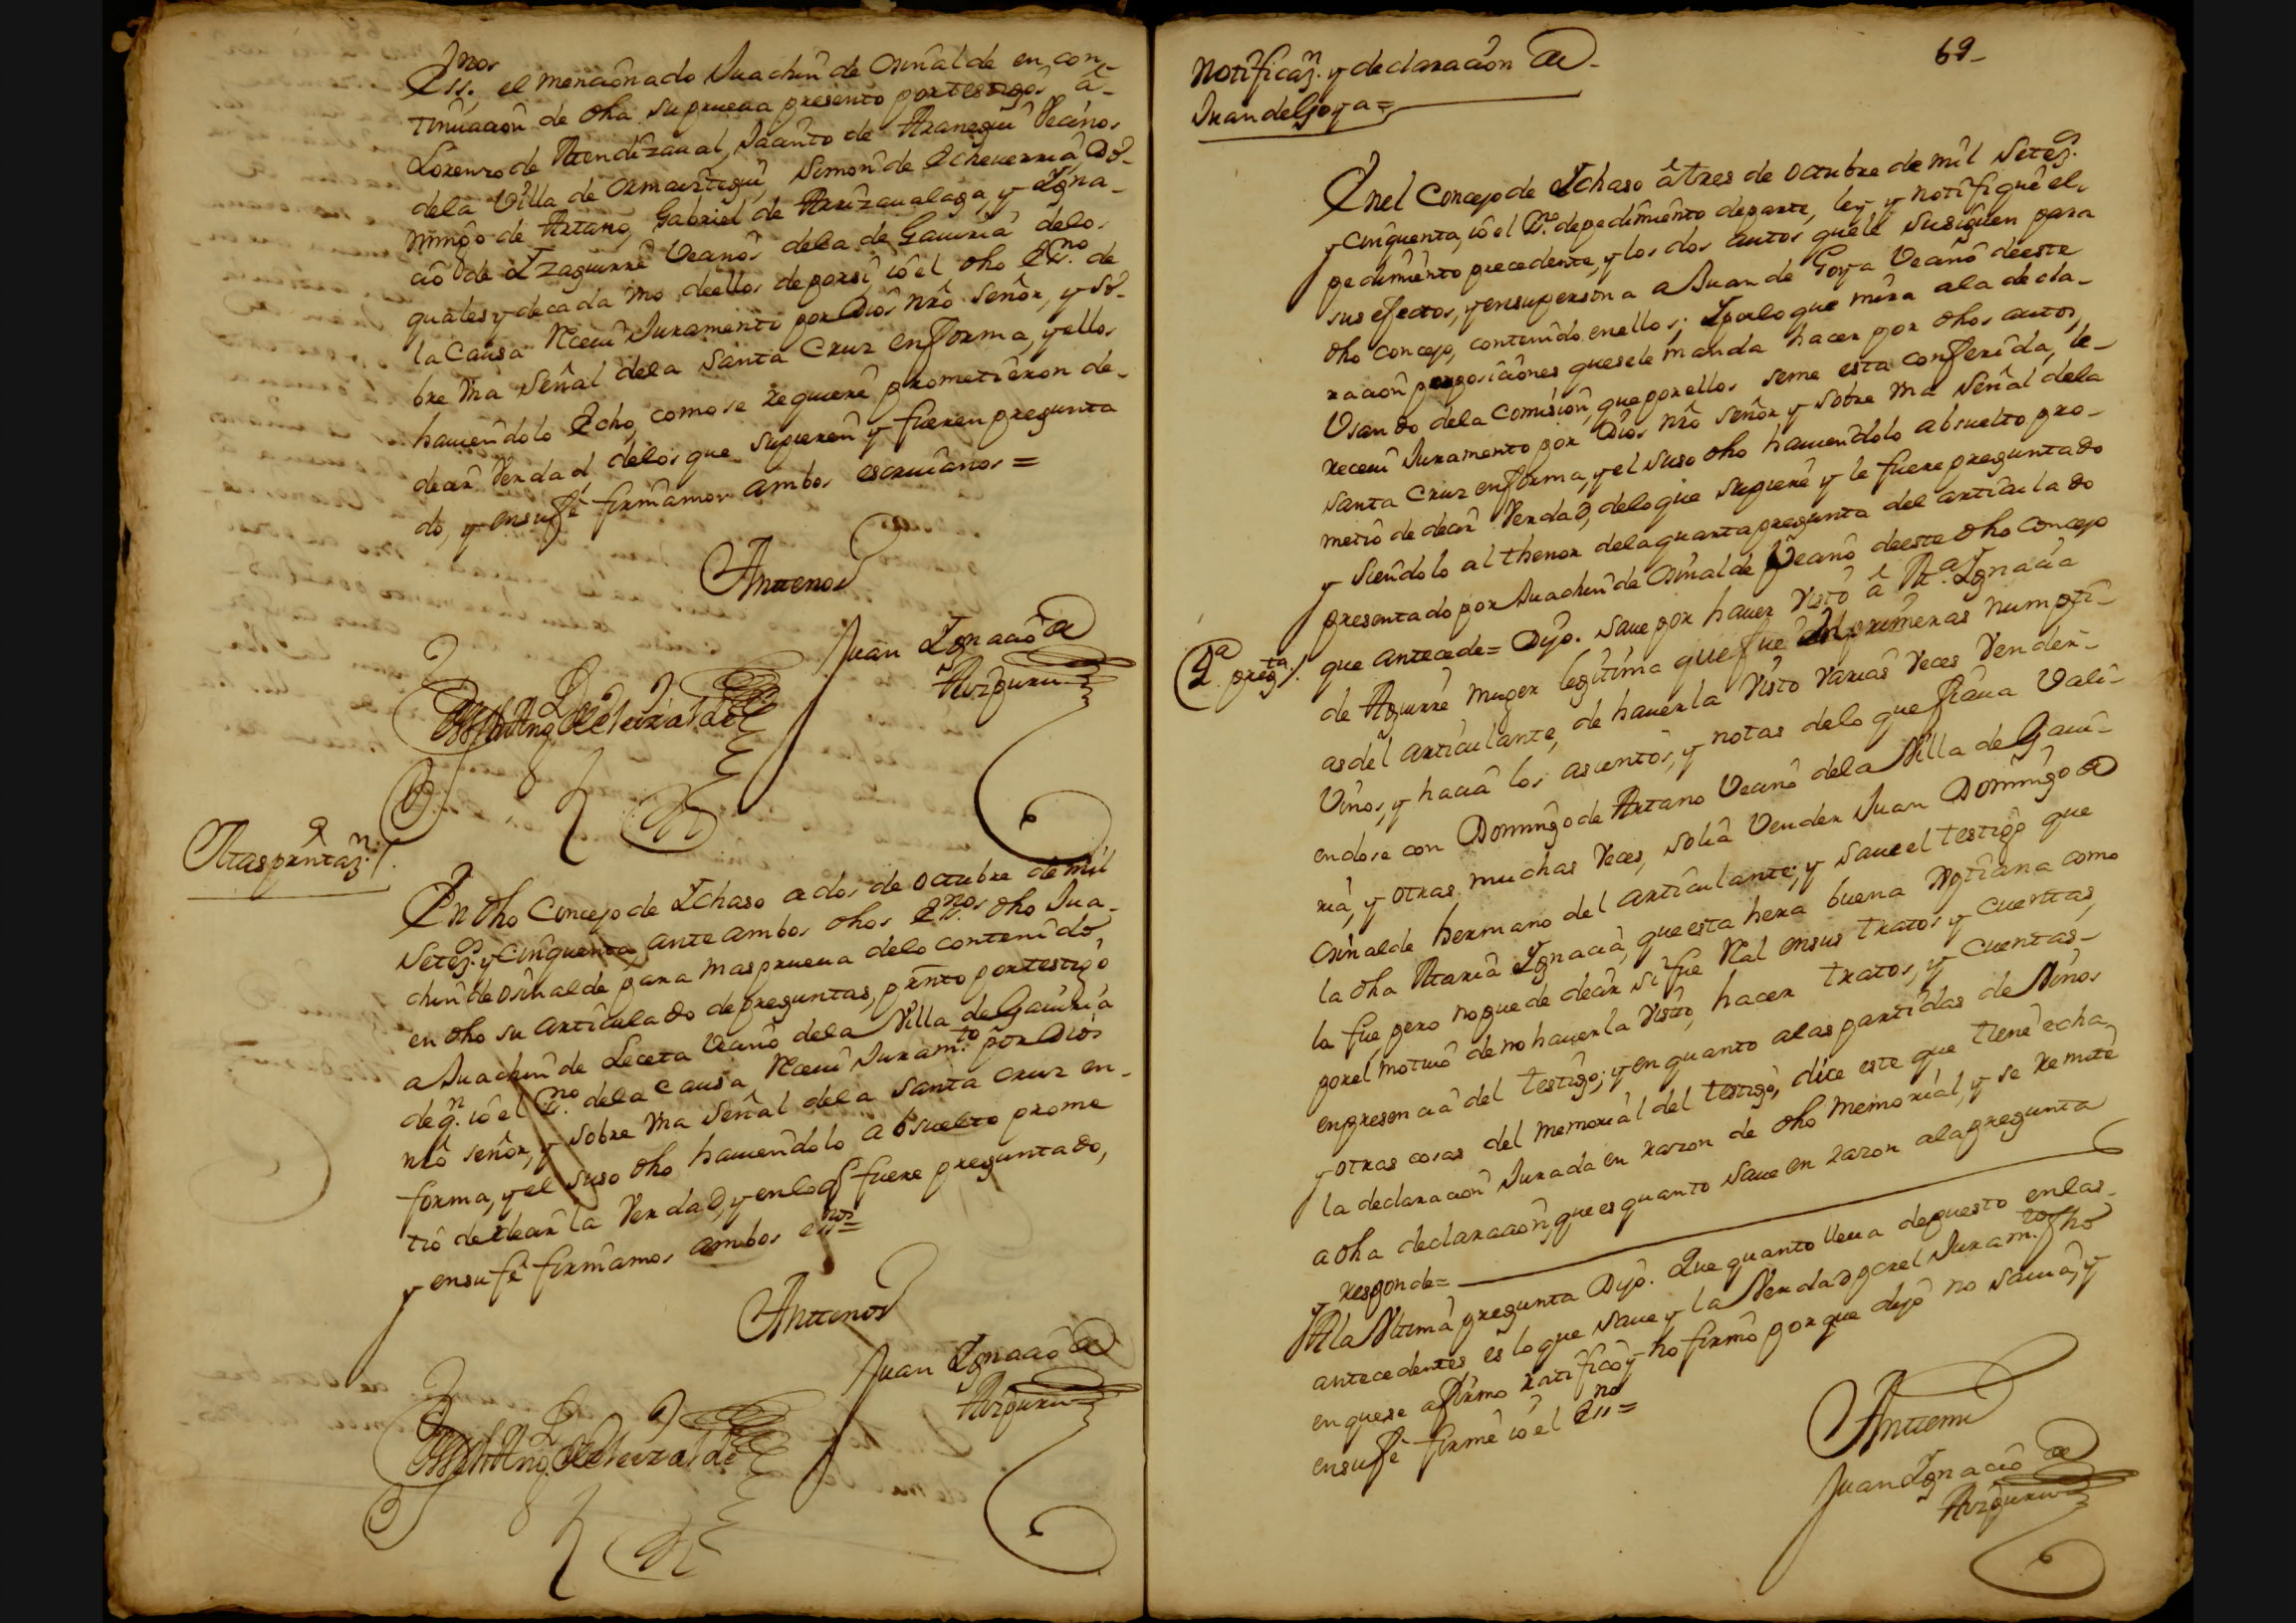 Ess.nos el mencionado Juachin de Osinalde en con-
tinuacion de dha su prueua presento por testigos â
Lorenzo de Mendizaual, Jacinto de Aranegui Vecinos
dela Villa de Ormaiztegui, Simon de Echeuerria, Do-
mingo de Artano, Gabriel de Arrizaualaga, y Igna-
cio de Yzaguirre Vecinos dela de Gauiria delos
quales y de cada vno dellos de porsi, io el dho Ess.no de
la Causa Receui Juramento por Dios nrô Señor, y so-
bre vna Señal dela Santa Cruz en forma, y ellos
hauiendolo Echo, como se requiere prometieron de-
decir Verdad delos que supieren y fueren pregunta
do, y ensufê firmamos ambos escriuanos =
Antenos
Juan Ignacio de
Aizpuru
Otra presentaz.n
En dho Concejo de Ychaso a dos de octubre de mil
Setez.s y Cinquenta, ante ambos dhos Ess.nos dho Jua-
chin de Osinalde para mas prueua delo contenido
en dho su articulado de preguntas, prento por testigo
a Juachin de Leceta Vecino dela Villa de Gauiria
de q.n io el Ess.no dela Causa Receui Juram.to por Dios
nrô señor, y sobre vna Señal dela Santa Cruz en-
forma, y el suso dho hauiendolo absuelto prome
tiô de decir la Verdad, y enloq fuere preguntado,
y ensufê firmamos ambos ess.nos =
Antenos
Juan Ignacio de
Aizpuru
69-
Notificaz.n y declaracion de
Juan de Goya =
Enel Concejo de Ychaso â tres de Octubre de mil Setez.s
y Cinquenta, io el Ess.no de pedimiento departe, ley y notifiquê el
pedimiento precedente, y los dos autos quele subsiguen para
sus efectos, y ensupersona a Juan de Goya Vecino deeste
dho Concejo, contenido enellos; Y por lo que mira ala decla-
racion y posiciones quesele manda hacer por dhos autos,
Vsando dela Comision, que por ellos seme esta conferida, le
receui Juramento por Dios nrô señor y sobre vna Señal dela
Santa Cruz enforma, y el suso dho hauiendolo absuelto pro-
metiô de decir Verdad, delo que supiere y le fuere preguntado
y siendolo al thenor dela quarta pregunta del articulado
presentado por Juachin de Osinalde Vecino deeste dho Concejo
4.a preg.ta
que antecede = Dijo. Saue por hauer visto â M.a Ygnacia
de Aguirre muger legitima que fue en primeras numpci-
as del articulante, de hauerla visto varias veces Vender
Vinos, y hacia los asientos, y notas delo que fiaua Vali-
endose con Domingo de Artano Vecino dela Villa de Gaui-
ria, y otras muchas veces, solia Vender Juan Domingo de
Osinalde hermano del articulante; y saue el testigo que
la dha Maria Ygnacia, que esta hera buena xptiana como
lo fue, pero no puede decir si fue Real ensus tratos y cuentas,
por el motiuo de no hauerla visto, hacer tratos, y cuentas-
enpresencia del testigo; y en quanto alas partidas de Vinos
y otras cosas del memorial del testigo, dice este que tiene echa
la declaracion Jurada en razon de dho memorial, y se remite
a dha declaracion, que es quanto saue en razon ala pregunta
y responde =
Ala Vltima pregunta Dijo. Que quanto lleua depuesto enlas
antecedentes es lo que saue y la Verdad por el Juram.to fho
en que se afirmo ratifico y no firmô porque dijo no sauia, y
ensufê firmê io el Ess.no =
Antemi
Juan Ignacio de
Aizpuru